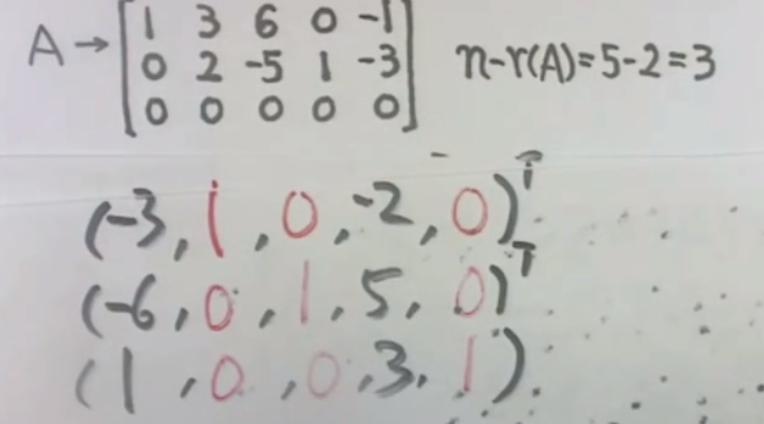 A → [1 3 6 0 -1
0 2 -5 1 -3
0 0 0 0 0] n-r(A)=5-2=3
(-3, 1, 0, -2, 0)ᵀ
(-6, 0, 1, 5, 0)ᵀ
(1, 0, 0, 3, 1)